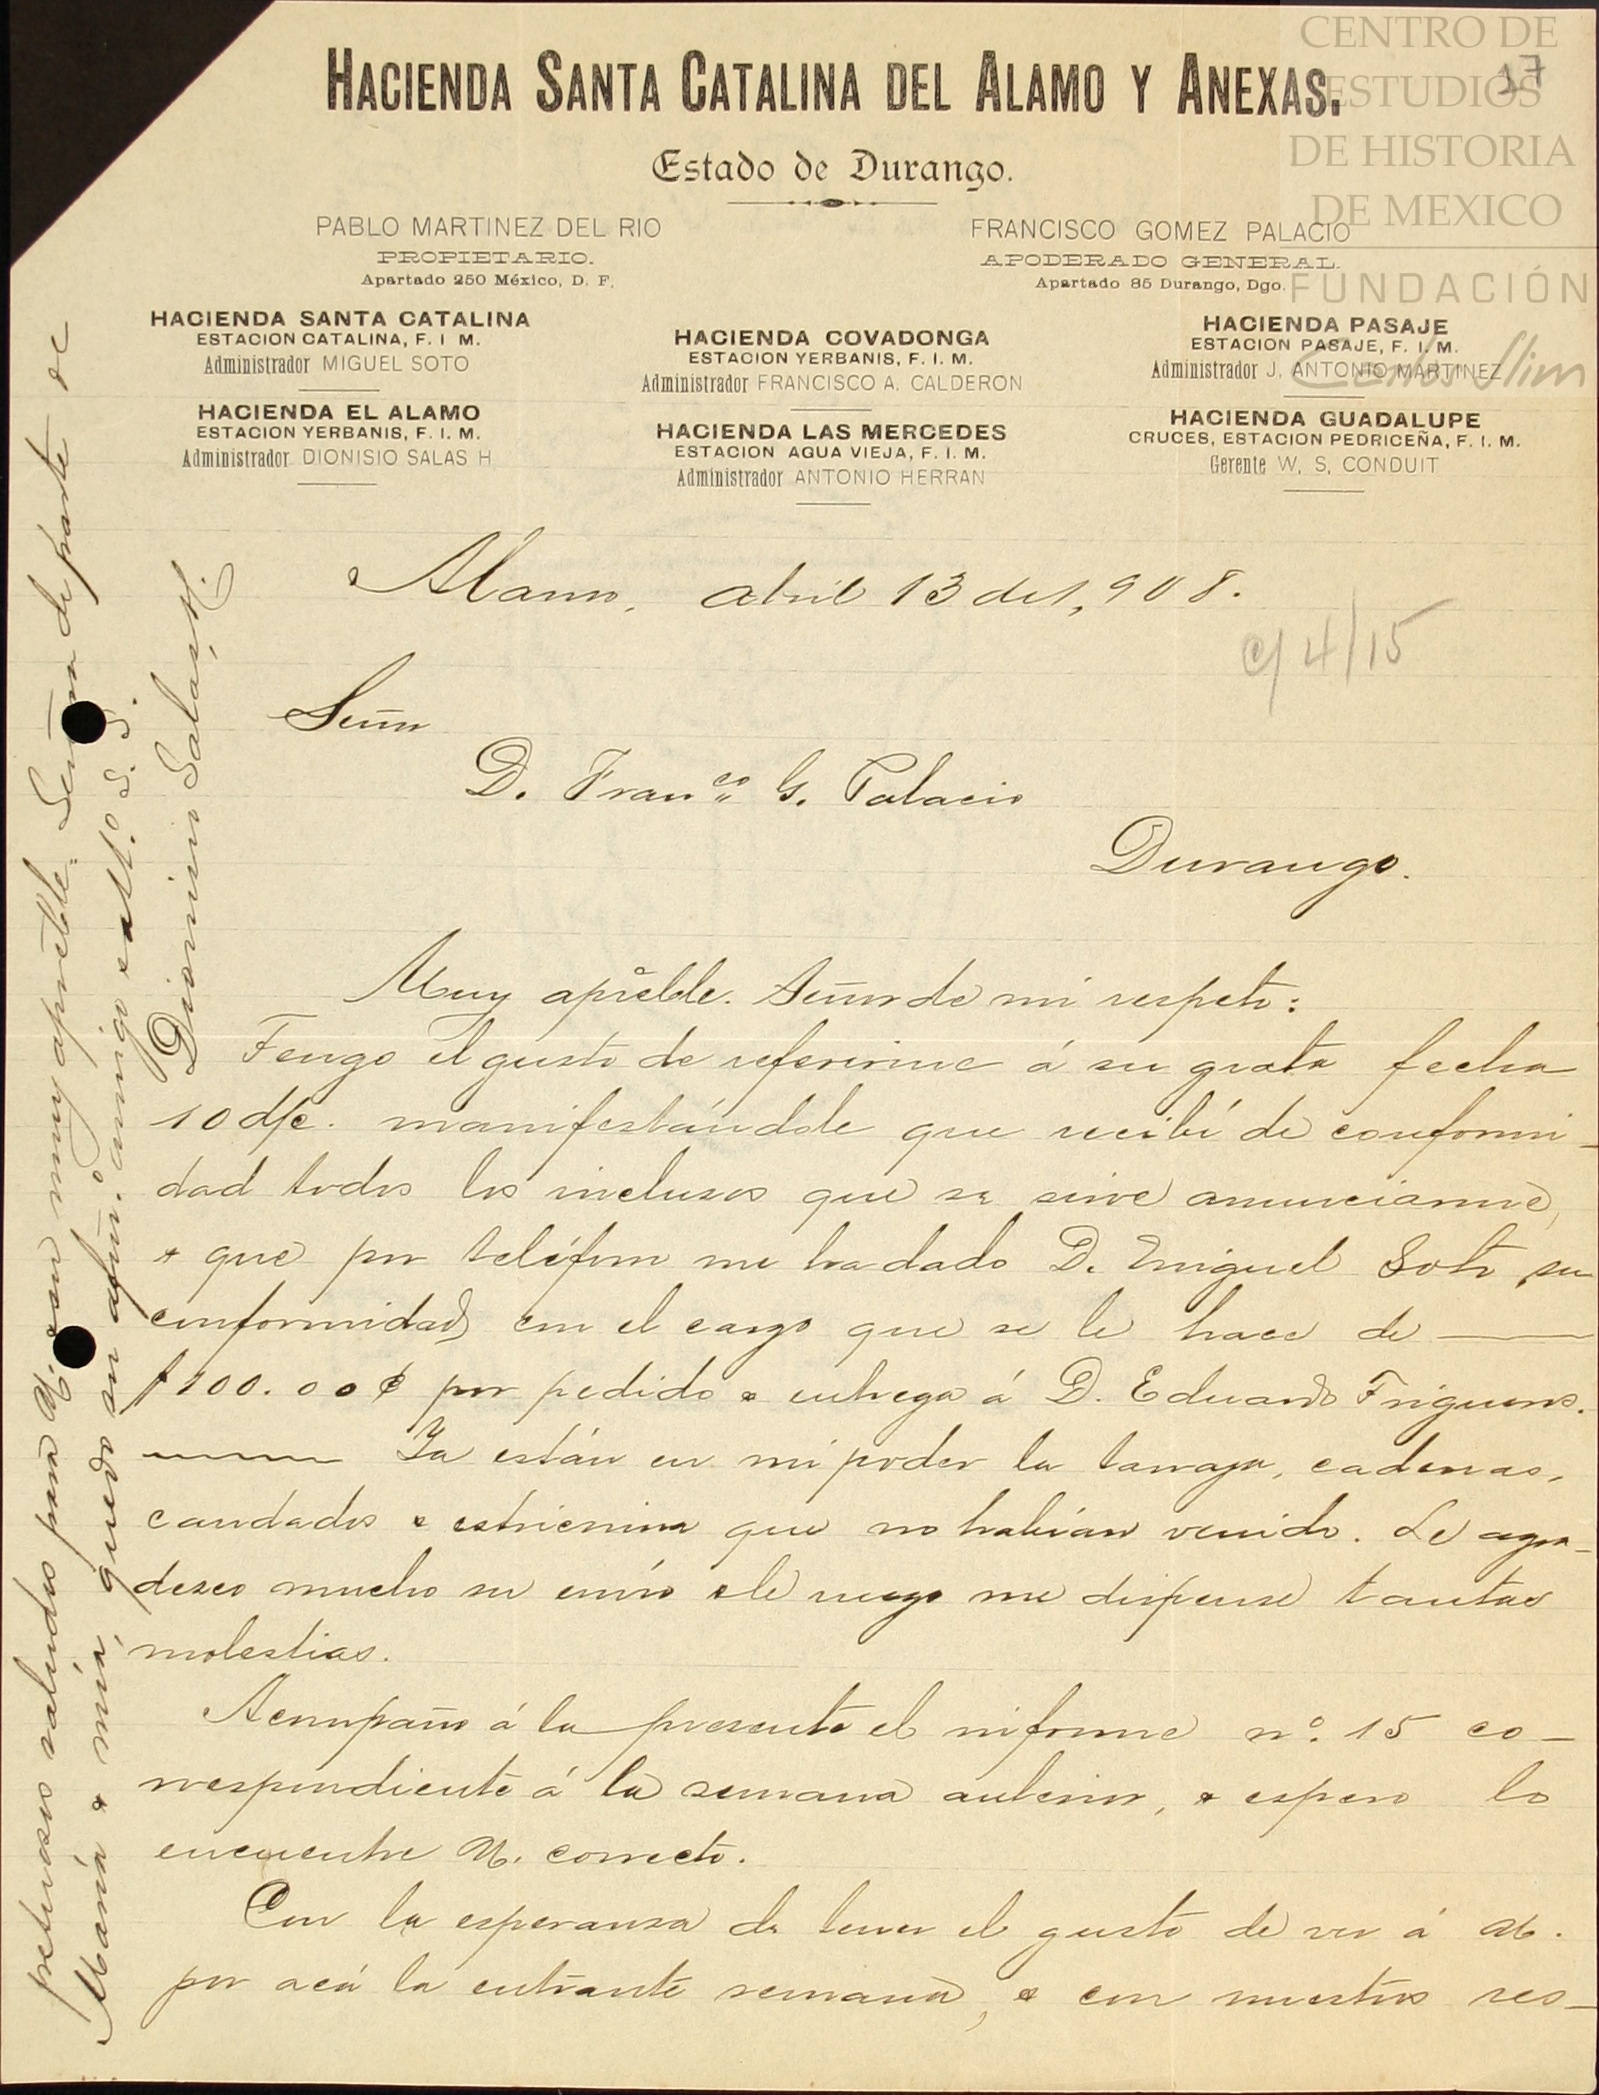 CENTRO DE
ESTUDIOS
DE HISTORIA
DE MEXICO
FUNDACIÓN
Carlos Slim
17
HACIENDA SANTA CATALINA DEL ALAMO Y ANEXAS.
Estado de Durango.
PABLO MARTINEZ DEL RIO
PROPIETARIO.
Apartado 250 México, D. F.
FRANCISCO GOMEZ PALACIO
APODERADO GENERAL.
Apartado 85 Durango, Dgo.
HACIENDA SANTA CATALINA
ESTACION CATALINA, F. I M.
Administrador MIGUEL SOTO
HACIENDA EL ALAMO
ESTACION YERBANIS, F. I. M.
Administrador DIONISIO SALAS H
HACIENDA COVADONGA
ESTACION YERBANIS, F. I. M.
Administrador FRANCISCO A. CALDERON
HACIENDA LAS MERCEDES
ESTACION AGUA VIEJA, F. I. M.
Administrador ANTONIO HERRAN
HACIENDA PASAJE
ESTACION PASAJE, F. I. M.
Administrador J. ANTONIO MARTINEZ
HACIENDA GUADALUPE
CRUCES, ESTACION PEDRICEÑA, F. I. M.
Gerente W. S. CONDUIT
Alamo, abril 13 de 1,908.
c/ 4/15
Señor
D. Franco. G. Palacio
Durango.
Muy apreble. Señor de mi respeto:
Tengo el gusto de referirme á su grata fecha
10 d/c. manifestándole que recibí de conformi-
dad todos los inclusos que se sirve anunciarme,
& que por teléfono me ha dado D. Miguel Soto su
conformidad con el cargo que se le hace de
$100.00¢ por pedido & entrega á D. Eduardo Trigueros.
Ya están en mi poder la tarraja, cadenas,
candados & estricnina que no habían venido. Le agra-
desco mucho su envío & le ruego me dispense tantas
molestias.
Acompaño á la presente el informe no. 15 co-
rrespondiente á la semana anterior, & espero lo
encuentre U. correcto.
Con la esperanza de tener el gusto de ver á U.
por acá la entrante semana, & con nuestros res-
petuosos saludos para U. con muy apreble. Señora de parte de
María & mía, quedo su afmo. amigo & atto. S. S.
Dionisio Salas H.